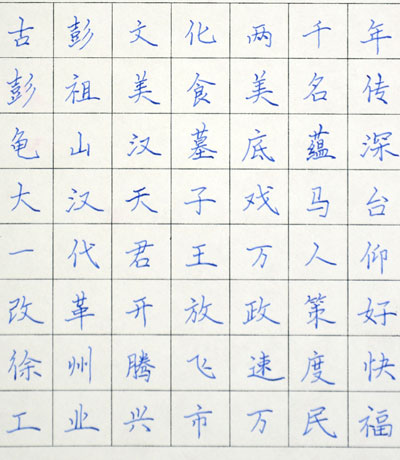 古彭文化两千年
彭祖美食美名传
龟山汉墓底蕴深
大汉天子戏马台
一代君王万人仰
改革开放政策好
徐州腾飞速度快
工业兴市万民福